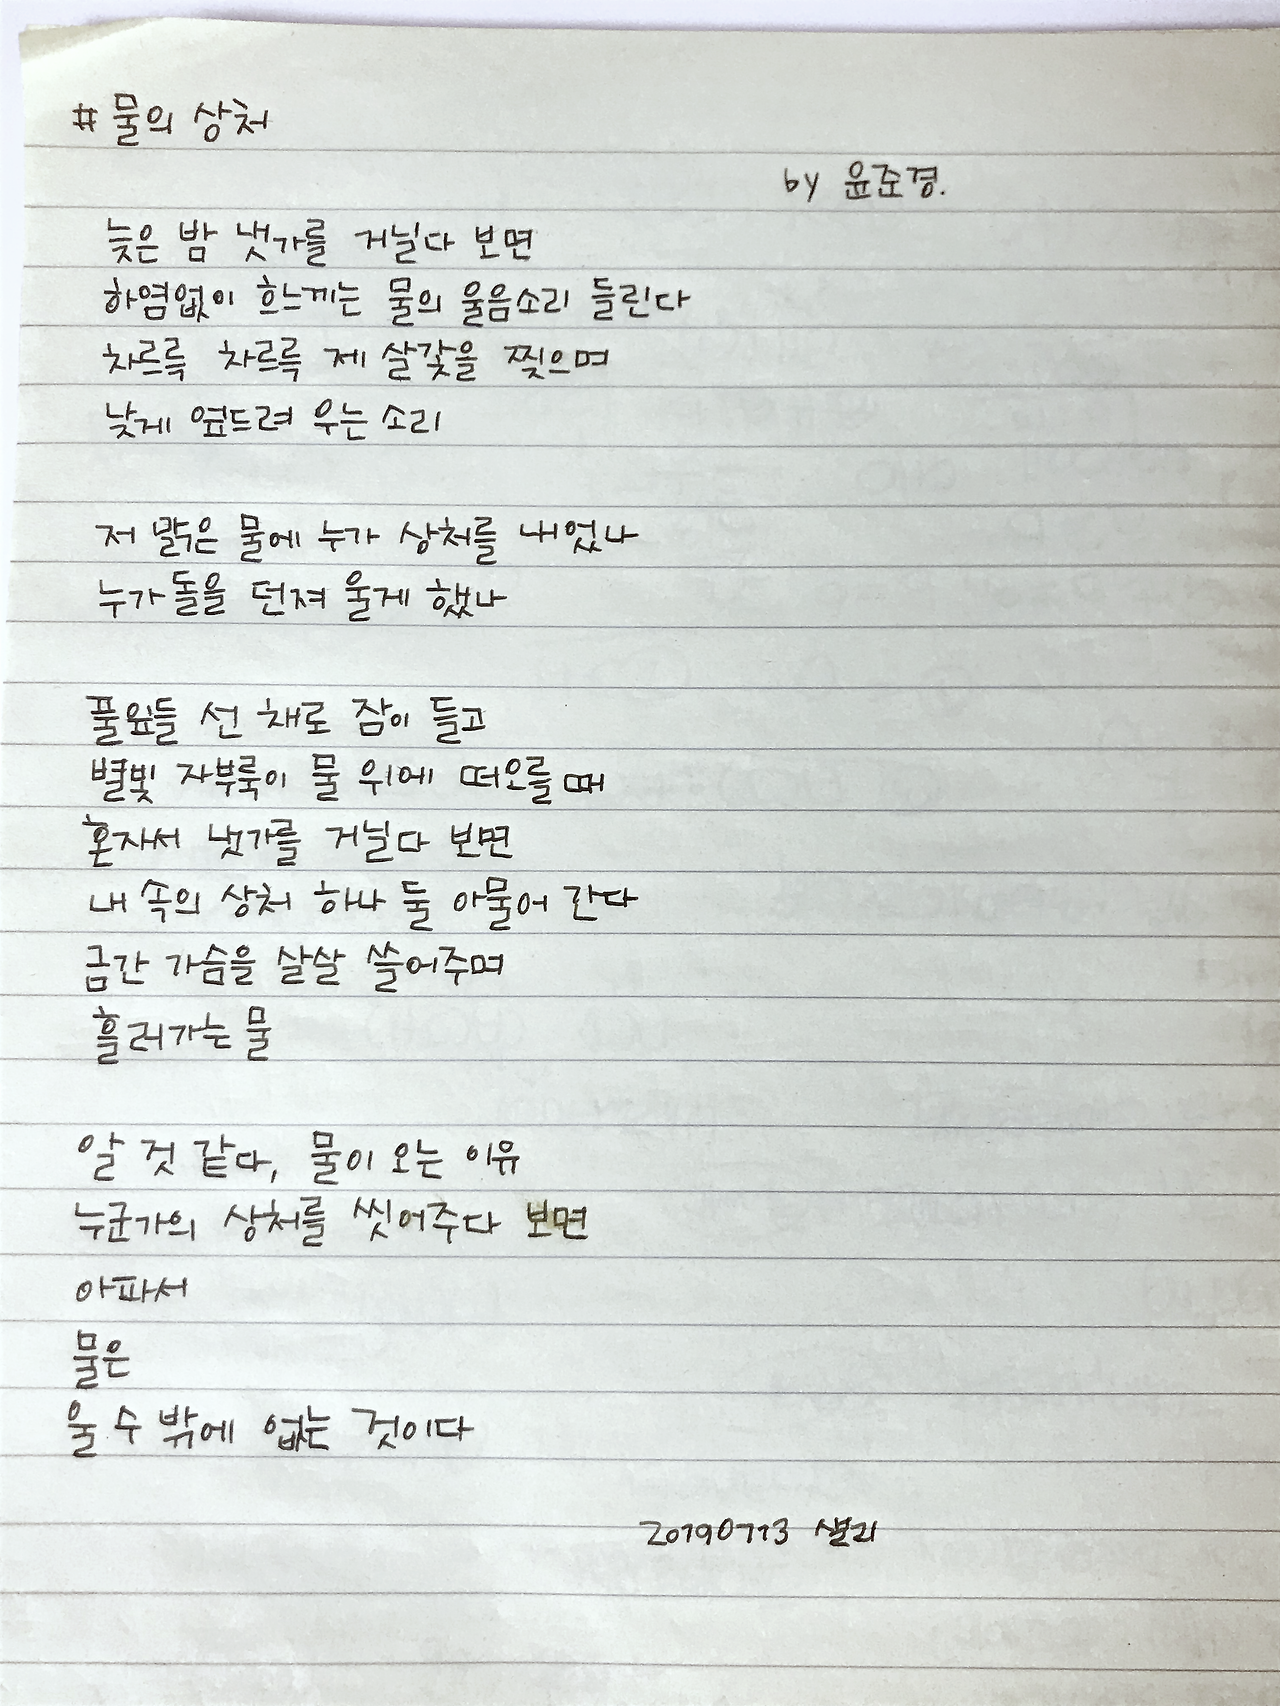 # 물의 상처
by 윤준경.
늦은 밤 냇가를 거닐다 보면
하염없이 흐느끼는 물의 울음소리 들린다
차르륵 차르륵 제 살갗을 찢으며
낮게 엎드려 우는 소리
저 맑은 물에 누가 상처를 내었나
누가 돌을 던져 울게 했나
풀잎들 선 채로 잠이 들고
별빛 자부룩이 물 위에 떠오를 때
혼자서 냇가를 거닐다 보면
내 속의 상처 하나 둘 아물어 간다
금간 가슴을 살살 쓸어주며
흘러가는 물
알 것 같다, 물이 오는 이유
누군가의 상처를 씻어주다 보면
아파서
물은
울 수 밖에 없는 것이다
20190713 샐리